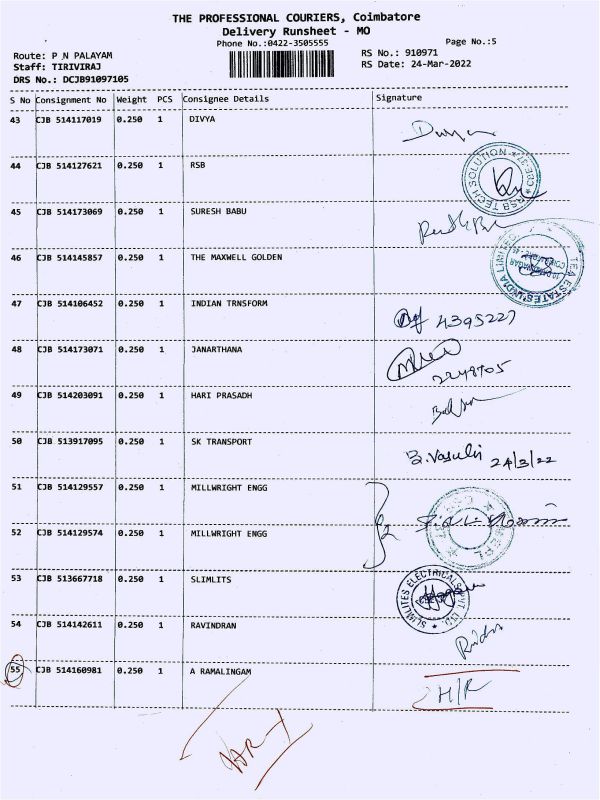 THE PROFESSIONAL COURIERS, Coimbatore
Delivery Runsheet - MO
Phone No.:0422-3505555
Page No.:5
Route: P_N PALAYAM
RS No.: 910971
Staff: TIRIVIRAJ
RS Date: 24-Mar-2022
DRS No.: DCJB91097105
S No Consignment No Weight PCS Consignee Details Signature
43 CJB 514117019 0.250 1 DIVYA
44 CJB 514127621 0.250 1 RSB
RSB TECH SOLUTION
45 CJB 514173069 0.250 1 SURESH BABU
46 CJB 514145857 0.250 1 THE MAXWELL GOLDEN
TEA ESTATES INDIA LIMITED
47 CJB 514106452 0.250 1 INDIAN TRNSFORM
4395227
48 CJB 514173071 0.250 1 JANARTHANA
49 CJB 514203091 0.250 1 HARI PRASADH
50 CJB 513917095 0.250 1 SK TRANSPORT
24/3/22
51 CJB 514129557 0.250 1 MILLWRIGHT ENGG
52 CJB 514129574 0.250 1 MILLWRIGHT ENGG
53 CJB 513667718 0.250 1 SLIMLITS
SLIMLITES ELECTRICALS PVT LTD
54 CJB 514142611 0.250 1 RAVINDRAN
55 CJB 514160981 0.250 1 A RAMALINGAM
H/R